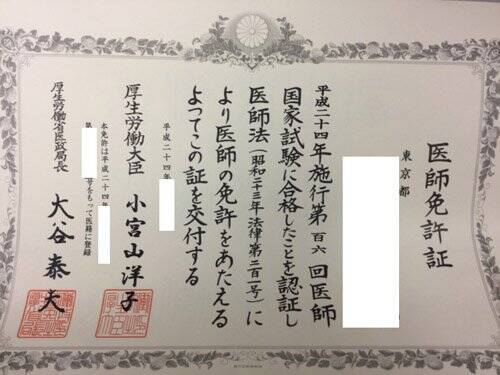 医師免許証
東京都
平成二十四年施行第百六回医師
国家試験に合格したことを認証し
医師法（昭和二十三年法律第二百一号）に
より医師の免許をあたえる
よつてこの証を交付する
平成二十四年
厚生労働大臣 小宮山洋子
本免許は平成二十四年
第 号をもって医籍に登録
厚生労働省医政局長 大谷泰夫